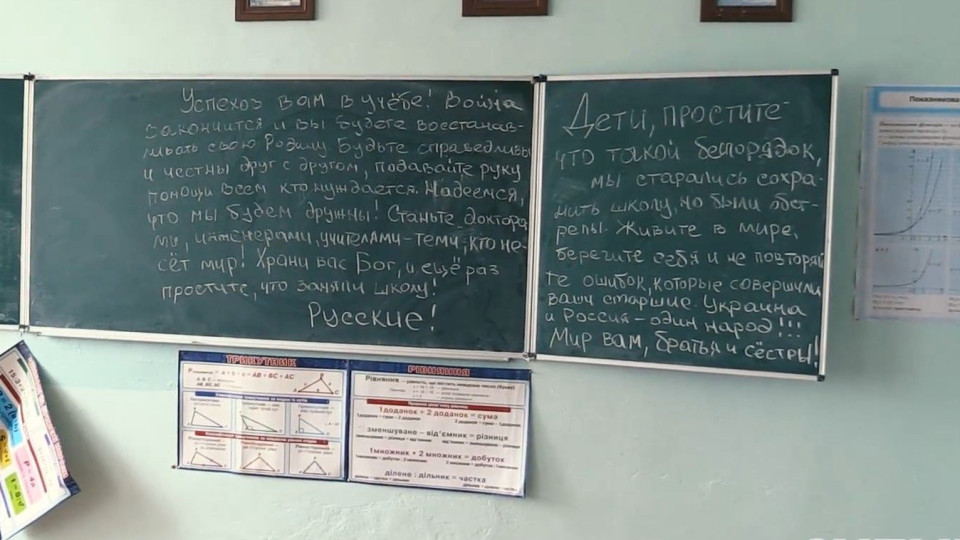 Успехов вам в учёбе! Война
закончится и вы будете восстанав-
ливать свою Родину. Будьте справедливы
и честны друг с другом, подавайте руку
помощи всем кто нуждается. Надеемся,
что мы будем дружны! Станьте доктора-
ми, инженерами, учителями – теми, кто не-
сёт мир! Храни вас Бог, и ещё раз
простите, что заняли школу!
Русские!
Дети, простите
что такой беспорядок,
мы старались сохра-
нить школу, но были обст-
релы. Живите в мире,
берегите себя и не повторяй
те ошибок, которые совершили
ваши старшие. Украина
и Россия – один народ!!!
Мир вам, братья и сёстры!
ТРИКУТНИК
РІВНЯННЯ
1доданок + 2 доданок = сума
зменшуване – від'ємник = різниця
1множник • 2 множник = добуток
ділене : дільник = частка